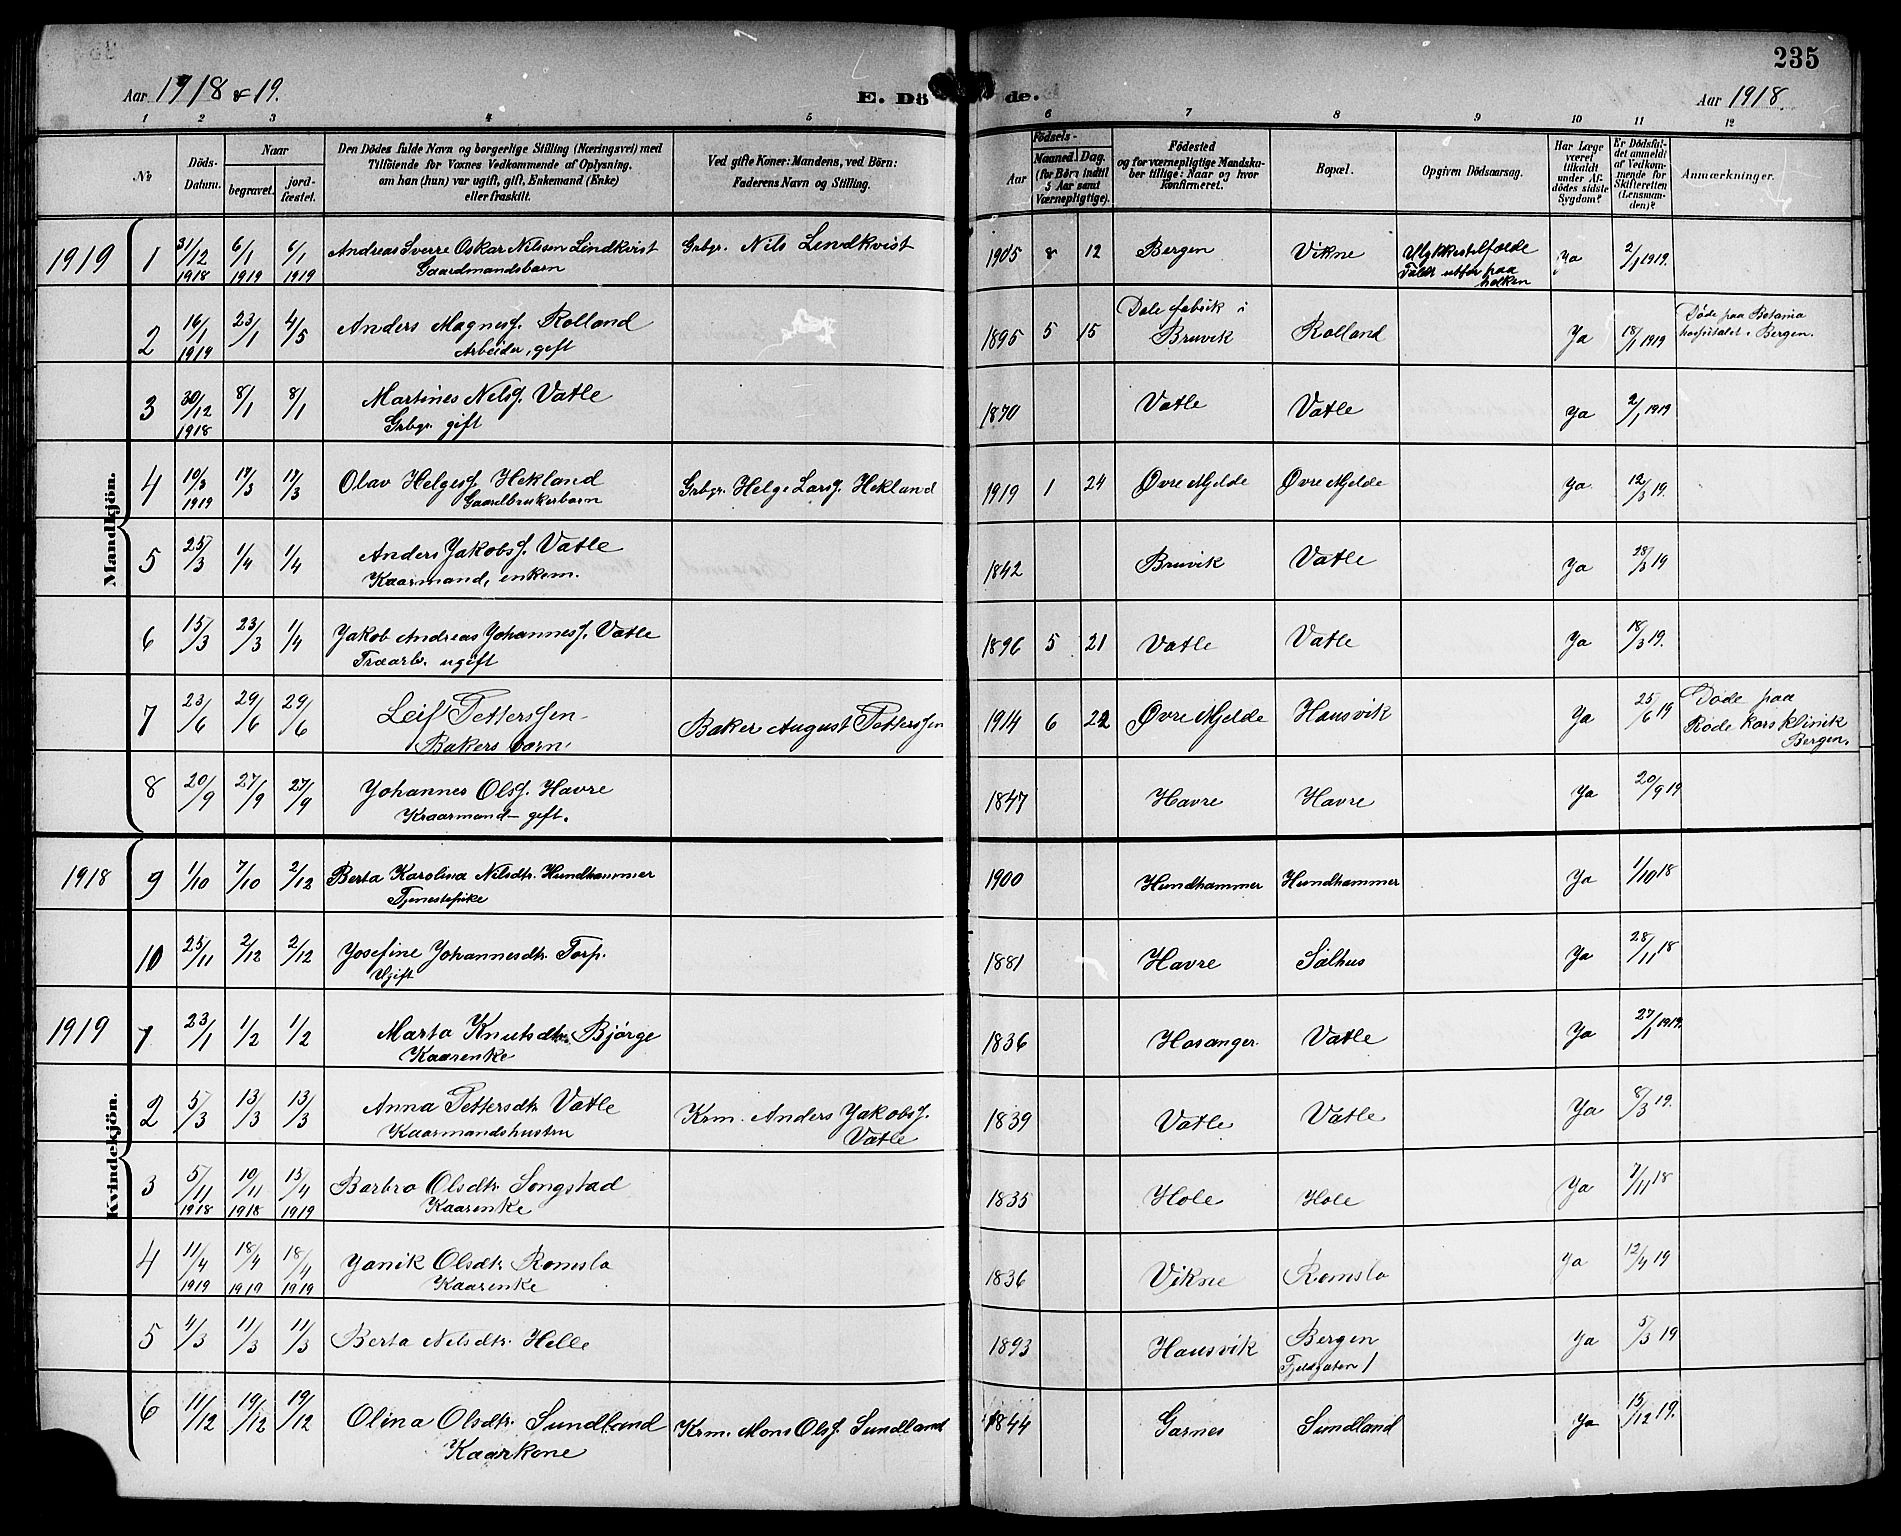 235
Aar 1918 & 19.
E. Dö de.
Aar 1918
1 2 3 4 5 6 7 8 9 10 11 12
No
Döds-Datum.
Naar
begravet.
jord-fæstet.
Den Dödes fulde Navn og borgerlige Stilling (Næringsvei) med
Tilföiende for Voxnes Vedkommende af Oplysning.
om han (hun) var ugift, gift, Enkemand (Enke)
eller fraskilt.
Ved gifte Koner: Mandens, ved Börn:
Faderens Navn og Stilling.
Födsels-
Aar
Maaned.
Dag.
(for Börn indtil
5 Aar samt
Værnepligtige).
Födested
og for værnepligtige Mandska-
ber tillige: Naar og hvor
konfirmeret.
Bopæl.
Opgiven Dödsaarsag.
Har Læge
været
tilkaldt
under Af-
dödes sidste
Sygdom?
Er Dödsfal-
det anmeldt
af Vedkom-
mende for
Skifteretten
(Lensman-
den)?
Anmærkninger.
Mandkjön.
1919 1 31/12 1918 6/1 1919 6/1 1919 Andreas Sverre Oskar Nilsen Lindkvist Grbgr. Nils Lindkvist 1905 8 12 Bergen Vikne Ulykkestilfælde Ja 2/1 1919.
Gaardmandsbarn Faldt utfor paa
bakken
2 16/1 1919 23/1 4/5 Anders Magnesf. Rolland 1895 5 15 Dale fabrik i Bruvik Rolland Ja 18/1 1919 Døde paa Betania
Arbeider, gift hospitalet i Bergen.
3 30/12 1918 8/1 8/1 Martines Nilsf. Vatle 1870 Vatle Vatle Ja 2/1 1919
Grbgr. gift
4 10/3 1919 17/3 17/3 Olav Helgesf. Hekland Grbgr. Helge Larsf. Hekland 1919 1 24 Øvre Mjelde Øvre Mjelde Ja 12/3 19.
Gaardbrukerbarn
5 25/3 1/4 1/4 Anders Jakobsf. Vatle 1842 Bruvik Vatle Ja 28/3 19
Kaarmand, enkem.
6 15/3 23/3 1/4 Jakob Andreas Johannesf. Vatle 1896 5 21 Vatle Vatle Ja 18/3 19.
Træarb. ugift
7 23/6 29/6 29/6 Leif Petterssen Baker August Petterssen 1914 6 22 Øvre Mjelde Hausvik Ja 25/6 19 Døde paa
Bakers barn. Røde kors klinik
Bergen.
8 20/9 27/9 27/9 Johannes Olsf. Havre 1847 Havre Havre Ja 20/9 19
Kraarmand - gift.
Kvindekjön.
1918 9 1/10 7/10 2/12 Berta Karolina Nilsdtr. Hundhammer 1900 Hundhammer Hundhammer Ja 1/10 18
Tjenestepike
10 25/11 2/12 2/12 Josefine Johannesdtr. Torp. 1881 Havre Salhus Ja 28/11 18
Ugift
1919 1 23/1 1/2 1/2 Marta Knutsdtr. Bjørge 1836 Hosanger Vatle Ja 27/1 1919.
Kaarenke
2 5/3 13/3 13/3 Anna Pettersdtr. Vatle Krm. Anders Jakobsf. 1839 Vatle Vatle Ja 8/3 19.
Kaarmandshustru Vatle
3 5/11 1918 10/11 1918 15/4 1919 Barbro Olsdtr. Songstad 1835 Hole Hole Ja 7/11 18
Kaarenke
4 11/4 1919 18/4 1919 18/4 1919 Janik Olsdtr. Romslo 1836 Vikne Romslo Ja 12/4 19
Kaarenke
5 1/3 11/3 11/3 Berta Nilsdtr. Helle 1893 Hausvik Bergen Ja 5/3 19
6 11/12 19/12 19/12 Olina Olsdtr. Sundland Krm. Mons Olsf. Sundland 1844 Garnes Sundland Ja 15/12 19.
Kaarkone